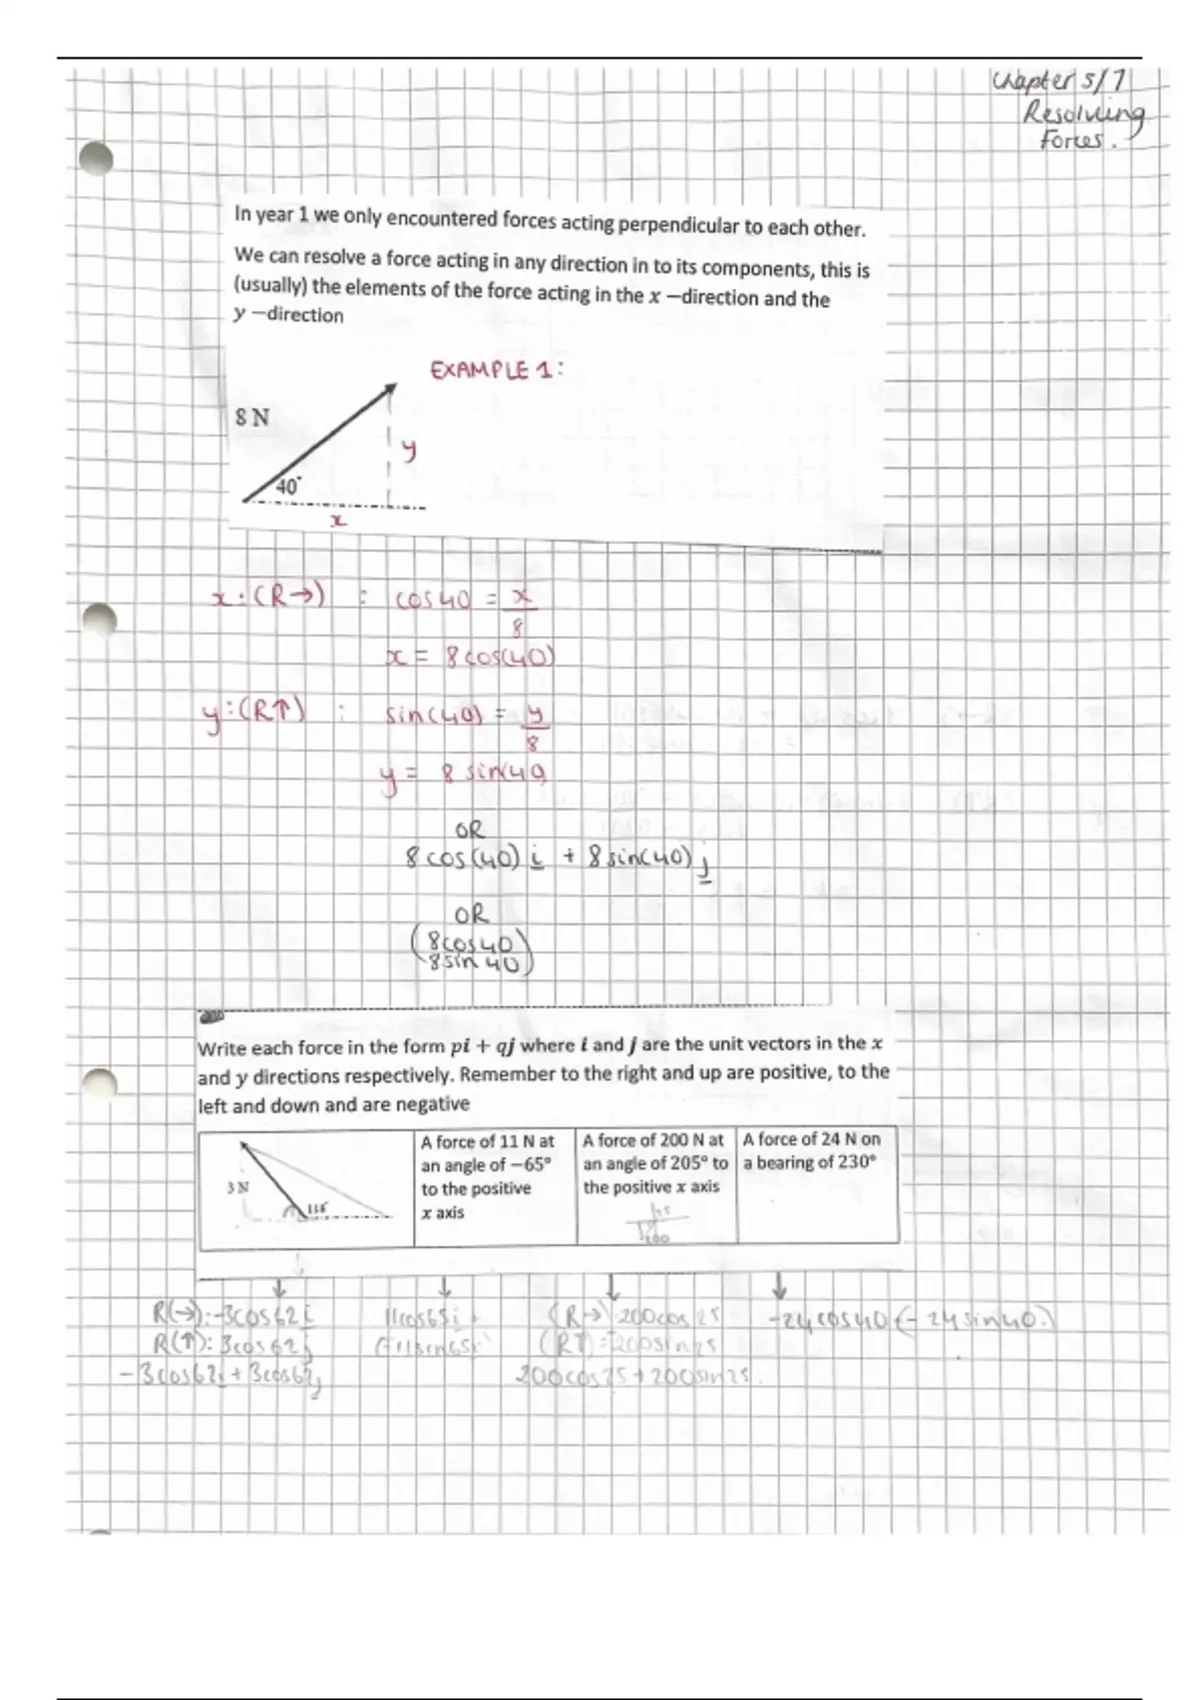 Chapter 5/7
Resolving
Forces.
In year 1 we only encountered forces acting perpendicular to each other.
We can resolve a force acting in any direction in to its components, this is
(usually) the elements of the force acting in the x −direction and the
y −direction
EXAMPLE 1:
8 N
y
40°
x
x:(R→) : cos40 = x/8
x = 8cos(40)
y:(R↑) : sin(40) = y/8
y = 8 sin(40)
OR
8cos(40) i + 8sin(40) j
OR
(8cos40
8sin40)
Write each force in the form pi + qj where i and j are the unit vectors in the x
and y directions respectively. Remember to the right and up are positive, to the
left and down and are negative
3 N
118°
A force of 11 N at
an angle of −65°
to the positive
x axis
A force of 200 N at
an angle of 205° to
the positive x axis
200
A force of 24 N on
a bearing of 230°
R(→): -3cos62 i
R(↑): 3cos62 j
-3cos62i + 3cos62j
11cos65i +
(-11sin65j)
(R→) 200cos25
(R↑) = -200sin25
200cos25 + 200sin25.
-24cos40 (- 24sin40.)